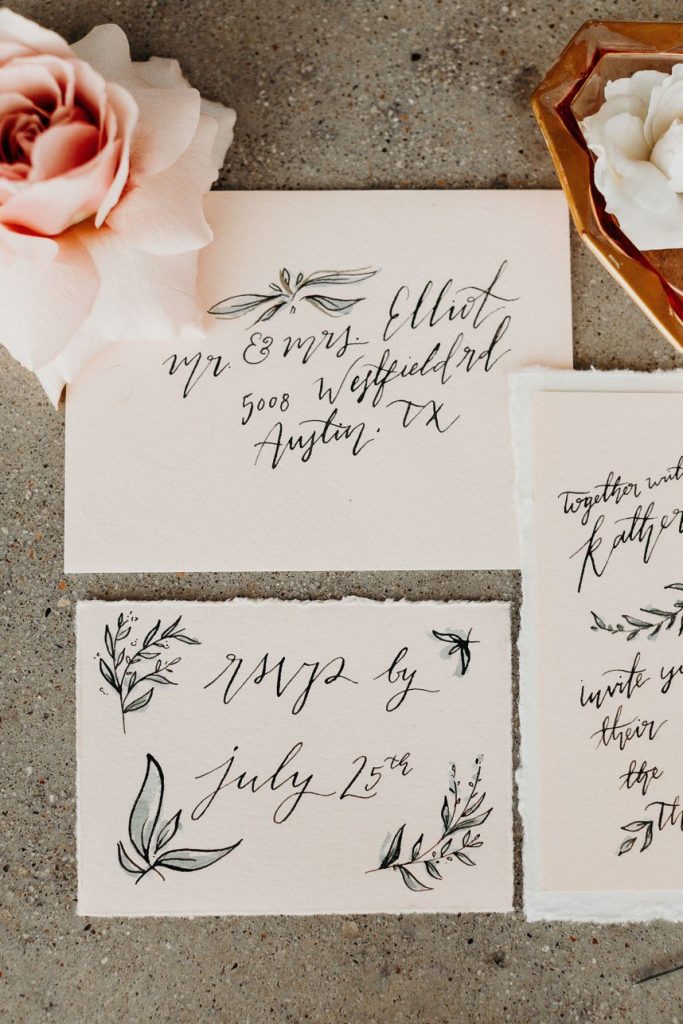 mr. & mrs. Elliot
5008 Westfield rd
Austin, TX
rsvp by
july 25th
together with
kather
invite yo
their
the
th